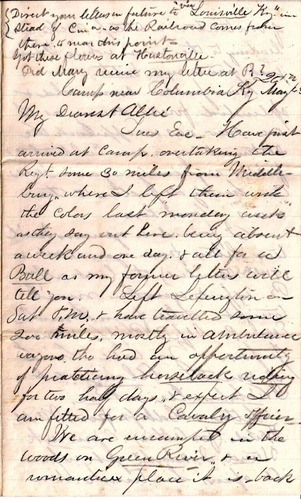 Direct your letters in future to "via Louisville Ky" in-
stead of Cin'a - as the Railroad comes from
there a near this point -
Got these flowers at Hustonville -
Did Mary receive my letter at
Camp near Columbia Ky May
My Dearest Allie
Tues Eve - Have just
arrived at Camp, overtaking the
Regt some 30 miles from Middle-
burg, where I left them with
the Colors last monday week
as they lay out here, being absent
a week and one day, & all for a
Ball as my former letter will
tell you. Left Lexington on
Sat P.M. & have travelled some
200 miles, mostly in ambulance
wagons, tho had an opportunity
of practicing horseback riding
for two half days, & expect I
am fitted for a Cavalry officer -
We are encamped in the
woods on Green River, & a
romantic place it is - back